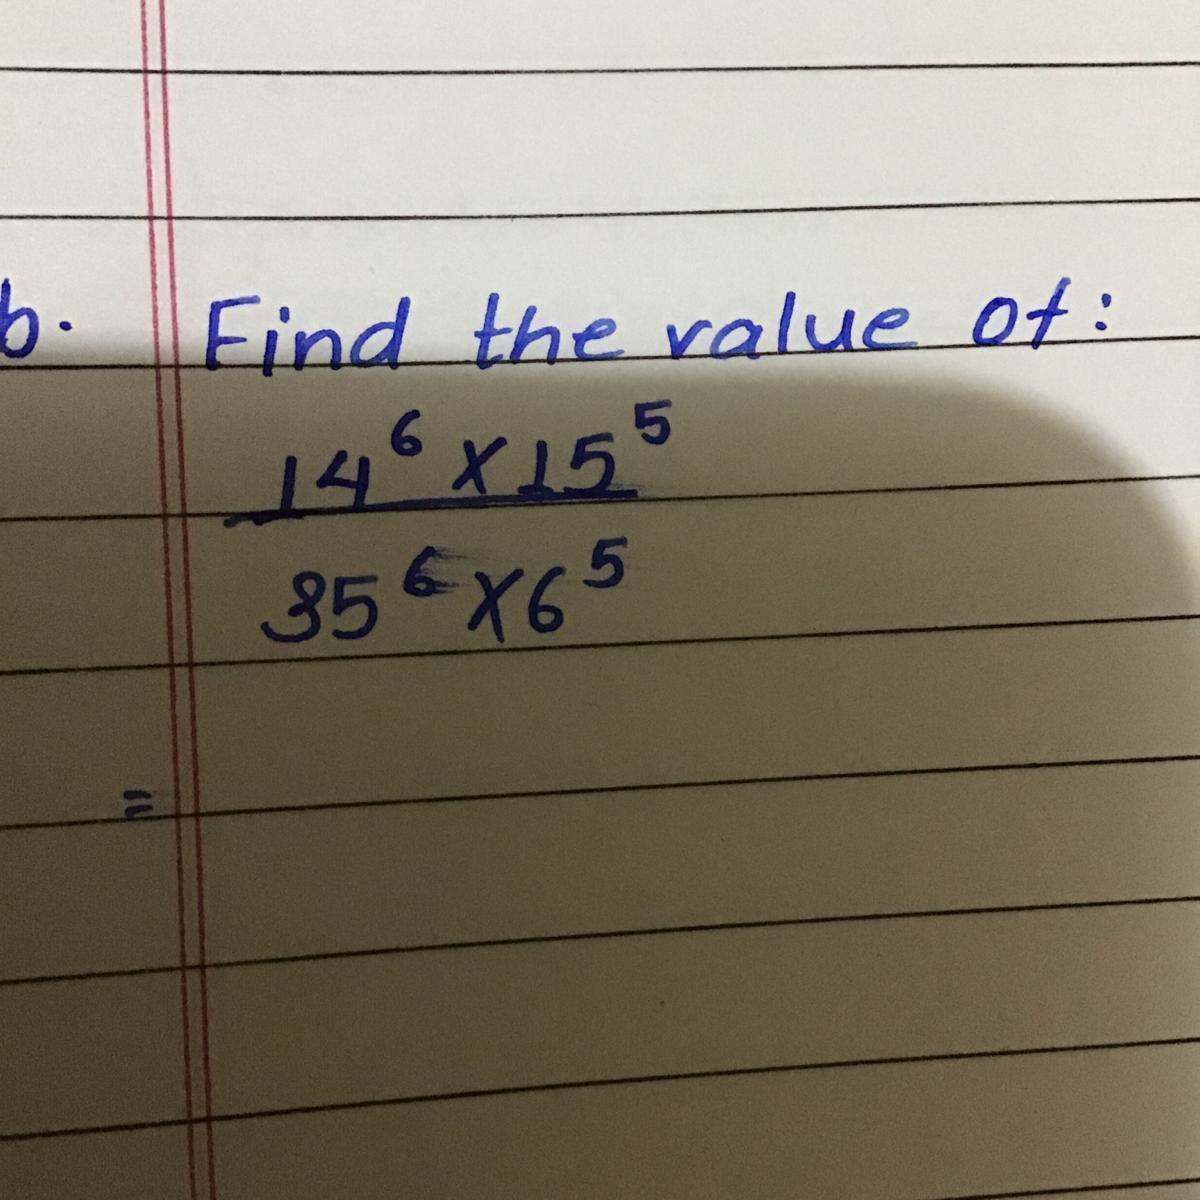 b. Find the value of:
14⁶ x 15⁵
35⁶ x 6⁵
=